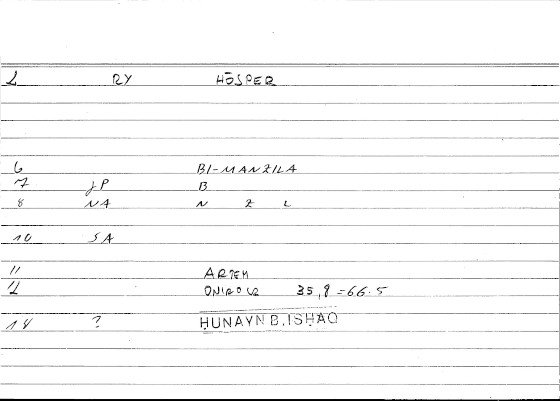 1 RY HŌSPER
6 BI-MANZILA
7 JP B
8 NA N Z L
10 SA
11 ARTEM
12 ONIROCR 35,8 = 66.5
14 ? ḤUNAYN B. ISḤAQ